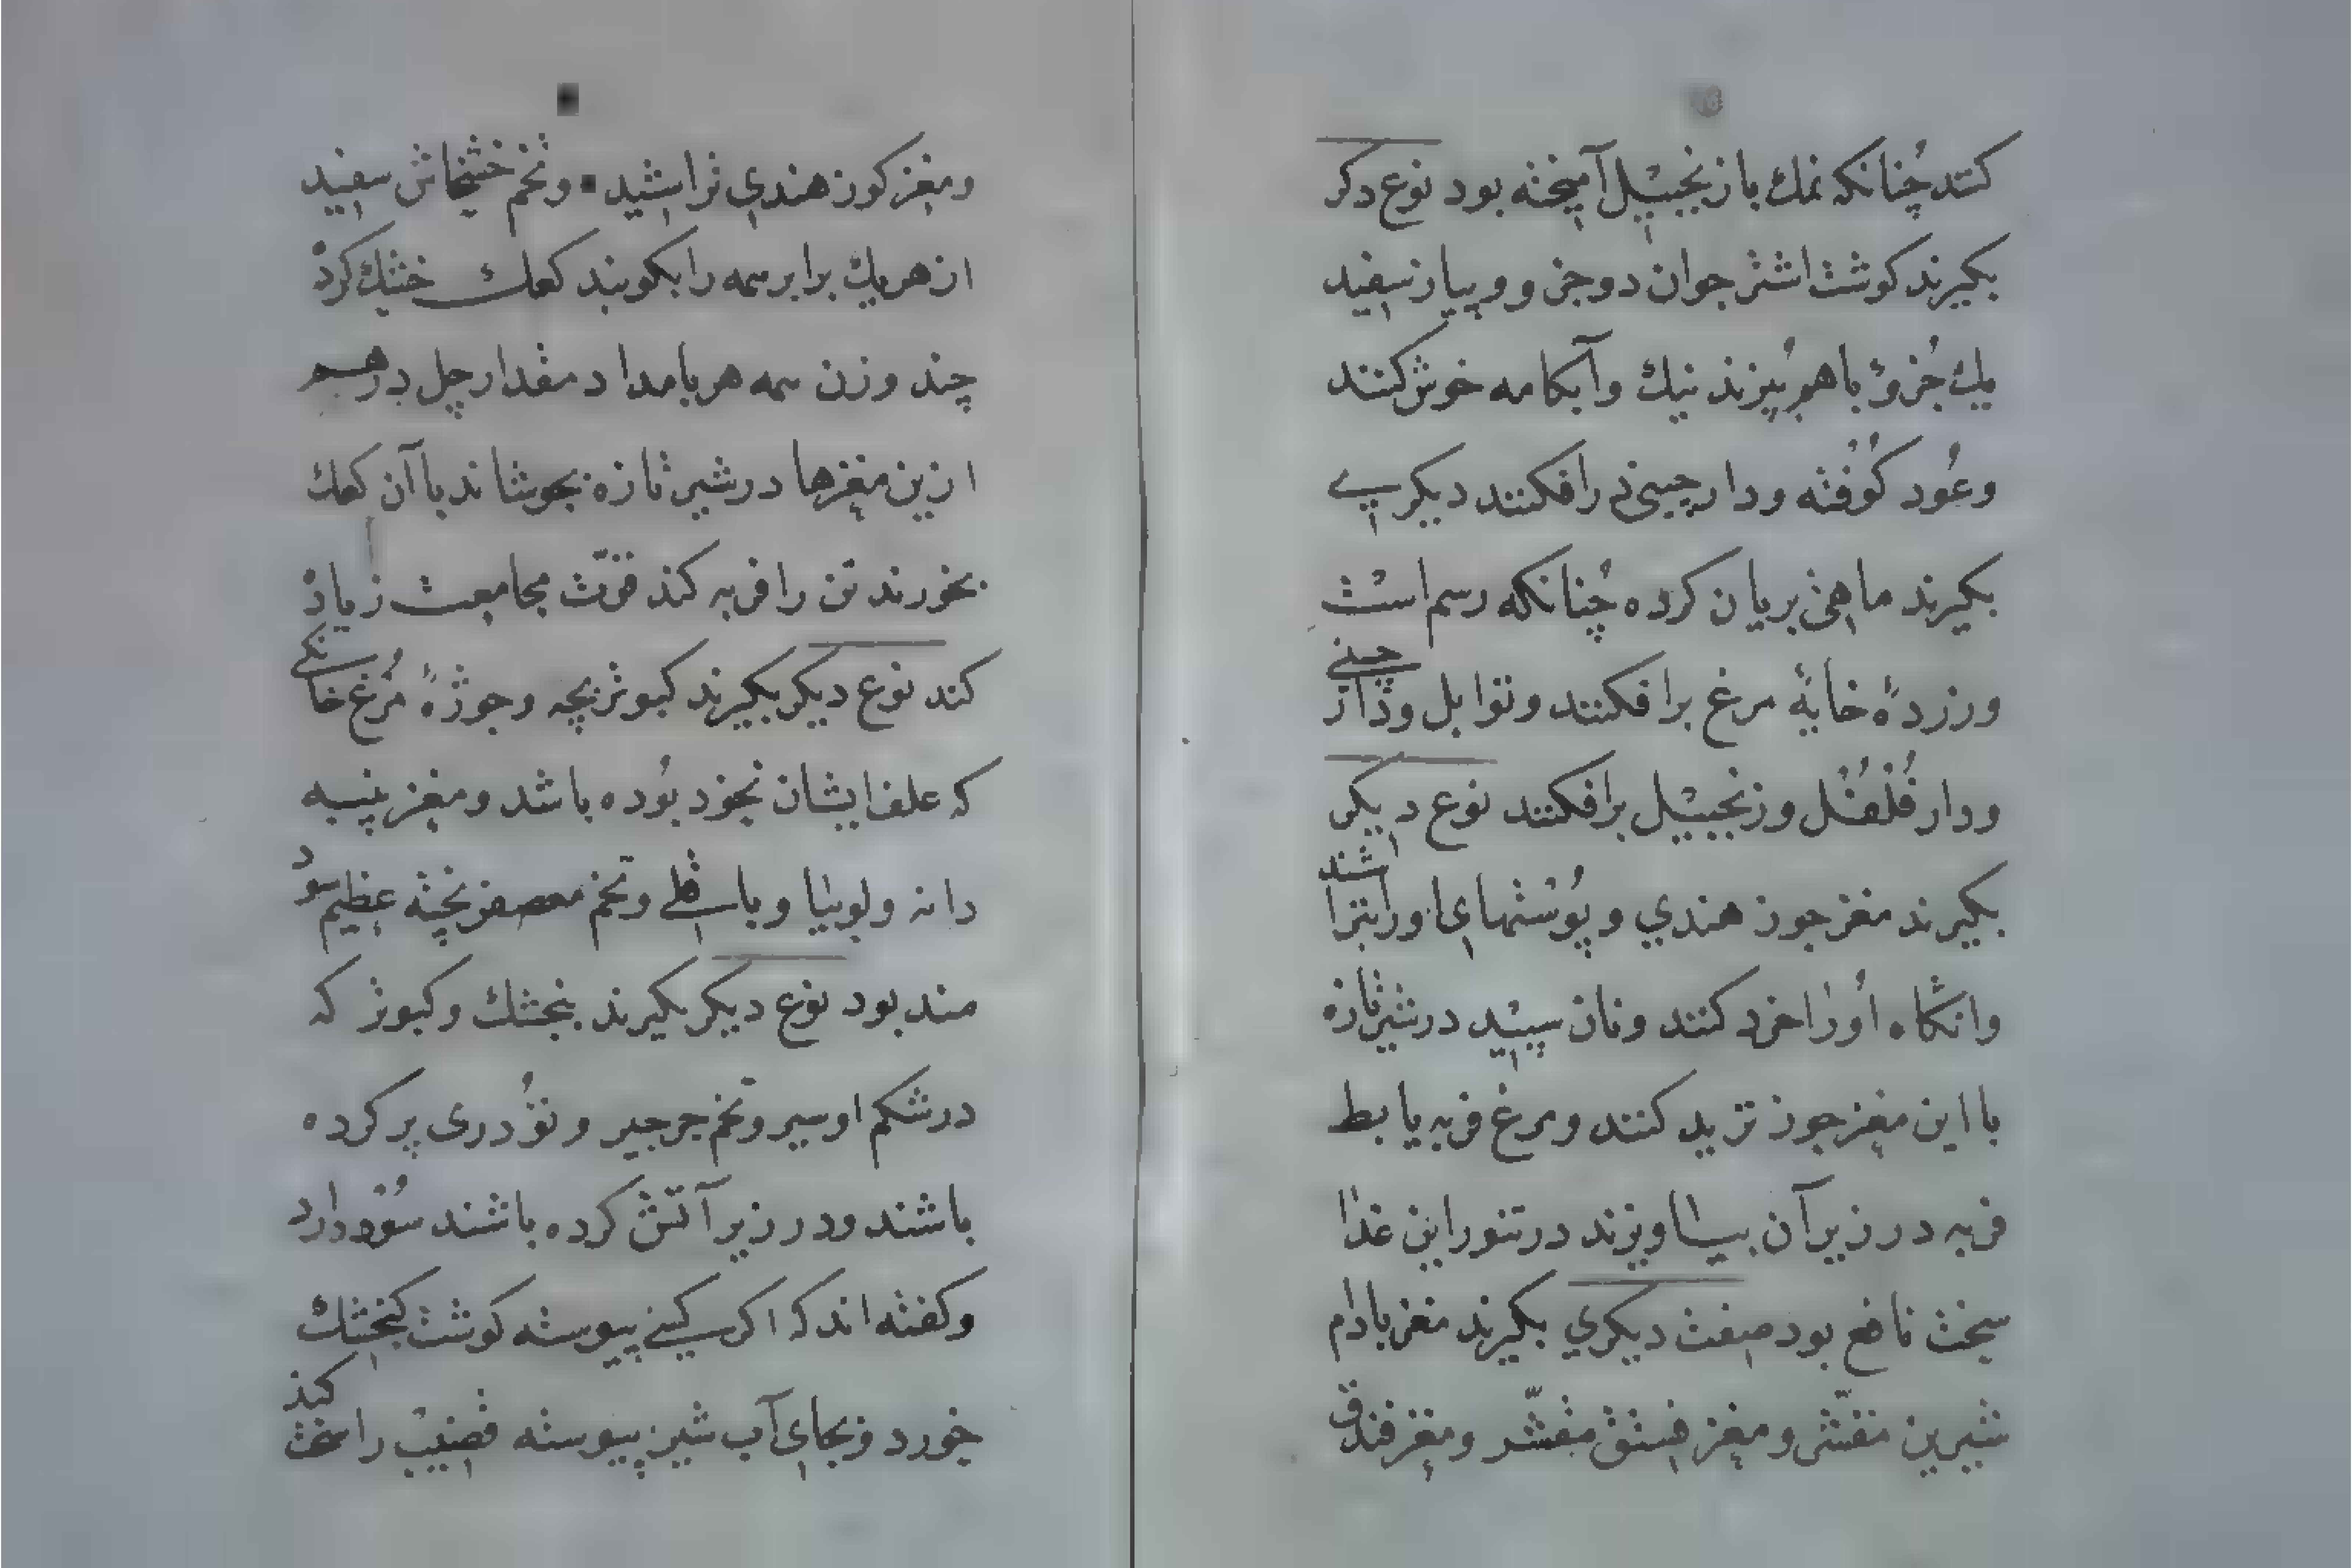 کنند چُنانکه نمك با زنجبیْیل آمیخته بود نوع دکر
بکیرند کوشت اشتر جوان دو جزو و پیاز سفید
یك جُزوْ با هم بپُزند نیك وآبکامه خوش کنند
وعُود کُوُفته ودارچینی درافکنند دیکر سپے
بکیرند ماهی بریان کرده چُنانکه رسم است
وزردهٔ خایهٔ مرغ برافکنند وتوابل ودار چینے
ودار فُلْفُل وزنجبیْل برافکنند نوع دیکر
بکیرند مغز جوز هندي وپُوْستهاي اورا بتراشند
وانکاه اُورا خرد کنند ونان سپیْد درشیر تازه
با این مغز جوز ترید کنند ومرغ فربه یا بط
فربه در زیر آن بیاویزند درتنور این غذا
سخت نافع بود صفت دیکري بکیرند مغز بادام
شیرین مقشّر ومغز فستق مقشّر ومغز فندق
ومغز کوز هندي تراشید وتخم خشخاش سفید
از هریك برابر سمه را بکوبند کعك خشك کرد
چند وزن سمه هر بامداد مقدار چل درهم
ازین مغزها درشیر تازه بجوشاند با آن کعك
بخورند تن را فربه کند قوّت مجامعت زیاد
کند نوع دیکر بکیرند کبوتربچه وجوژهٔ مُرغ خانکے
که علف ایشان نخود بُوده باشد ومغز پنبه
دانه ولوبیا وباقلے وتخم معصفر پخته عظیم سود
مند بود نوع دیکر بکیرند بنجشك وکبوتر که
درشکم او سیر وتخم جرجیر وتُودری پر کرده
باشند ودر زیر آتش کرده باشند سُوْد دارد
وکفته اند که اکر کسے پیوسته کوشت کنجشك
خورد وبجاي آب شیر پیوسته قضیب را سخت کند